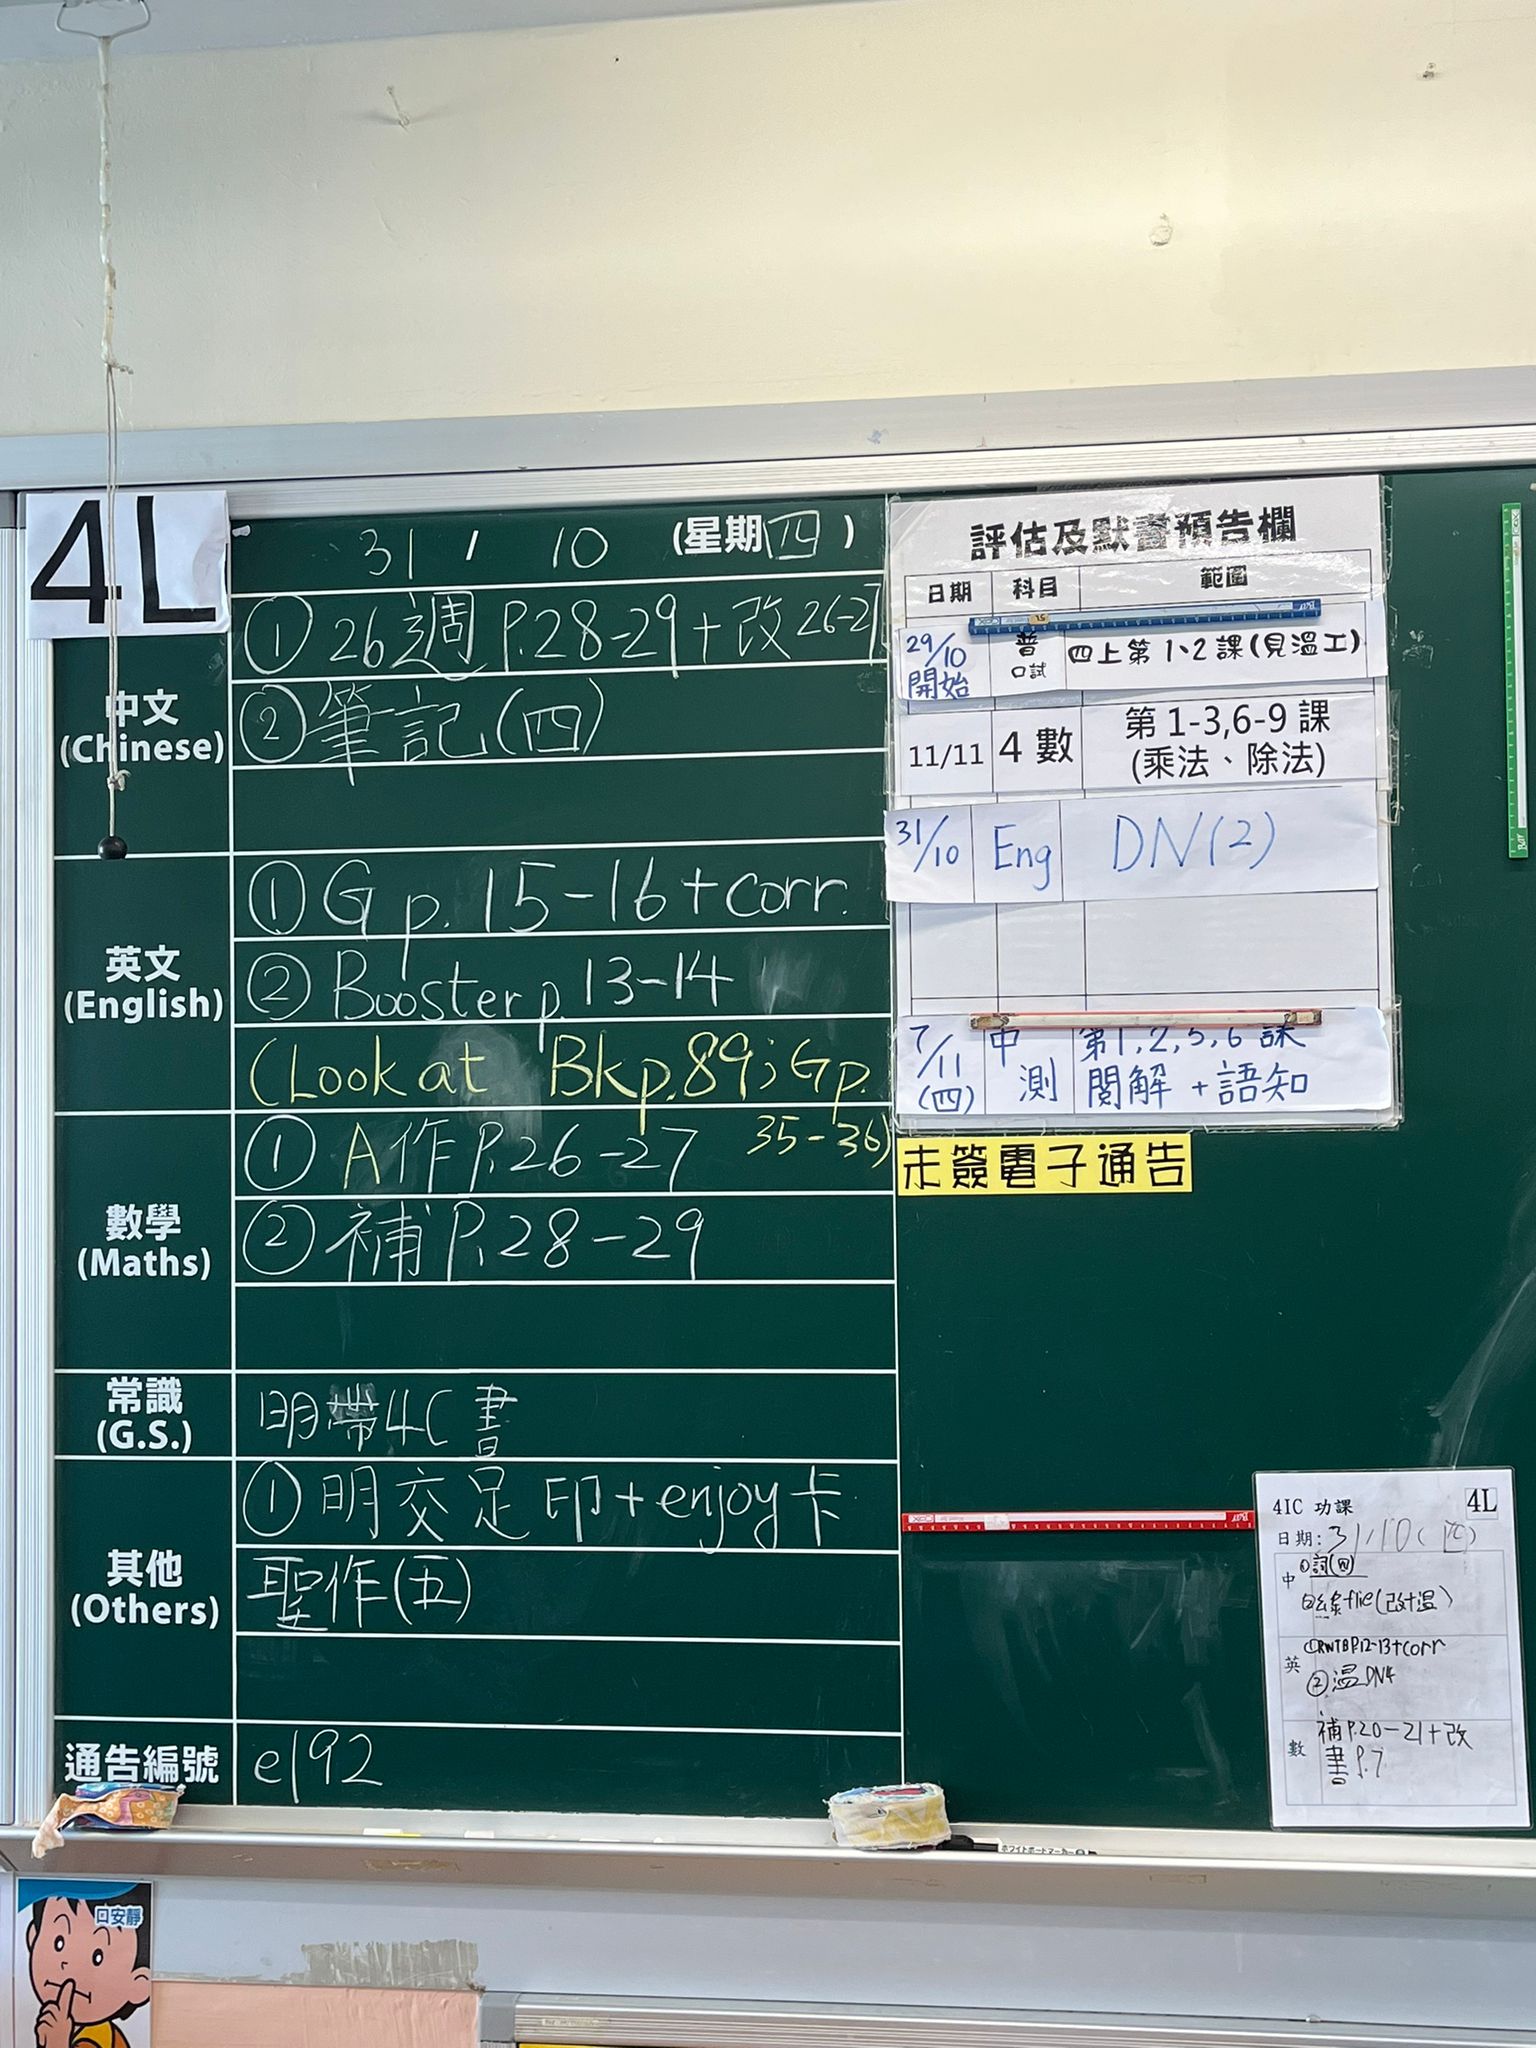 4L
31 / 10 (星期四)
中文
(Chinese)
① 26週 P.28-29+改 26-27
② 筆記(四)
英文
(English)
① G p. 15-16+corr.
② Booster p. 13-14
(Look at Bk p.89; G p.
35-36)
數學
(Maths)
① A作 P.26-27
② 補 P.28-29
常識
(G.S.)
明帶4C書
其他
(Others)
① 明交足印+enjoy卡
聖作(五)
通告編號
e192
評估及默書預告欄
日期 科目 範圍
29/10 開始 普 口試 四上第1、2課(見溫工)
11/11 4數 第1-3,6-9課
(乘法、除法)
31/10 Eng DN(2)
7/11 (四) 中測 第1,2,5,6課
閱解+語知
未簽電子通告
4IC 功課 4L
日期: 31/10(四)
中 ①詞(四)
(改+溫)
英 ①RWTB P.12-13+corr
②溫DN4
數 補P.20-21+改
書P.7
ホワイトボードマーカー
口安靜